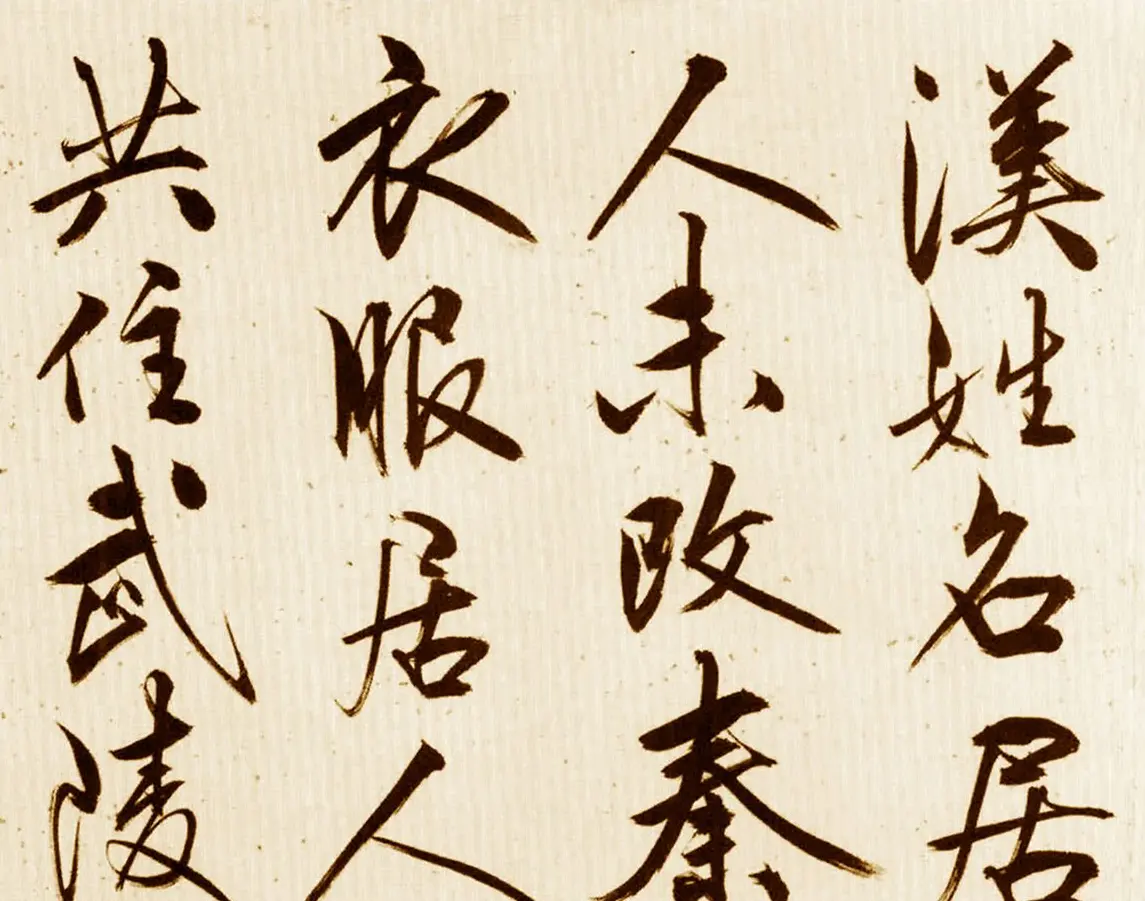 漢姓名居
人未改秦
衣服居人
共住武陵